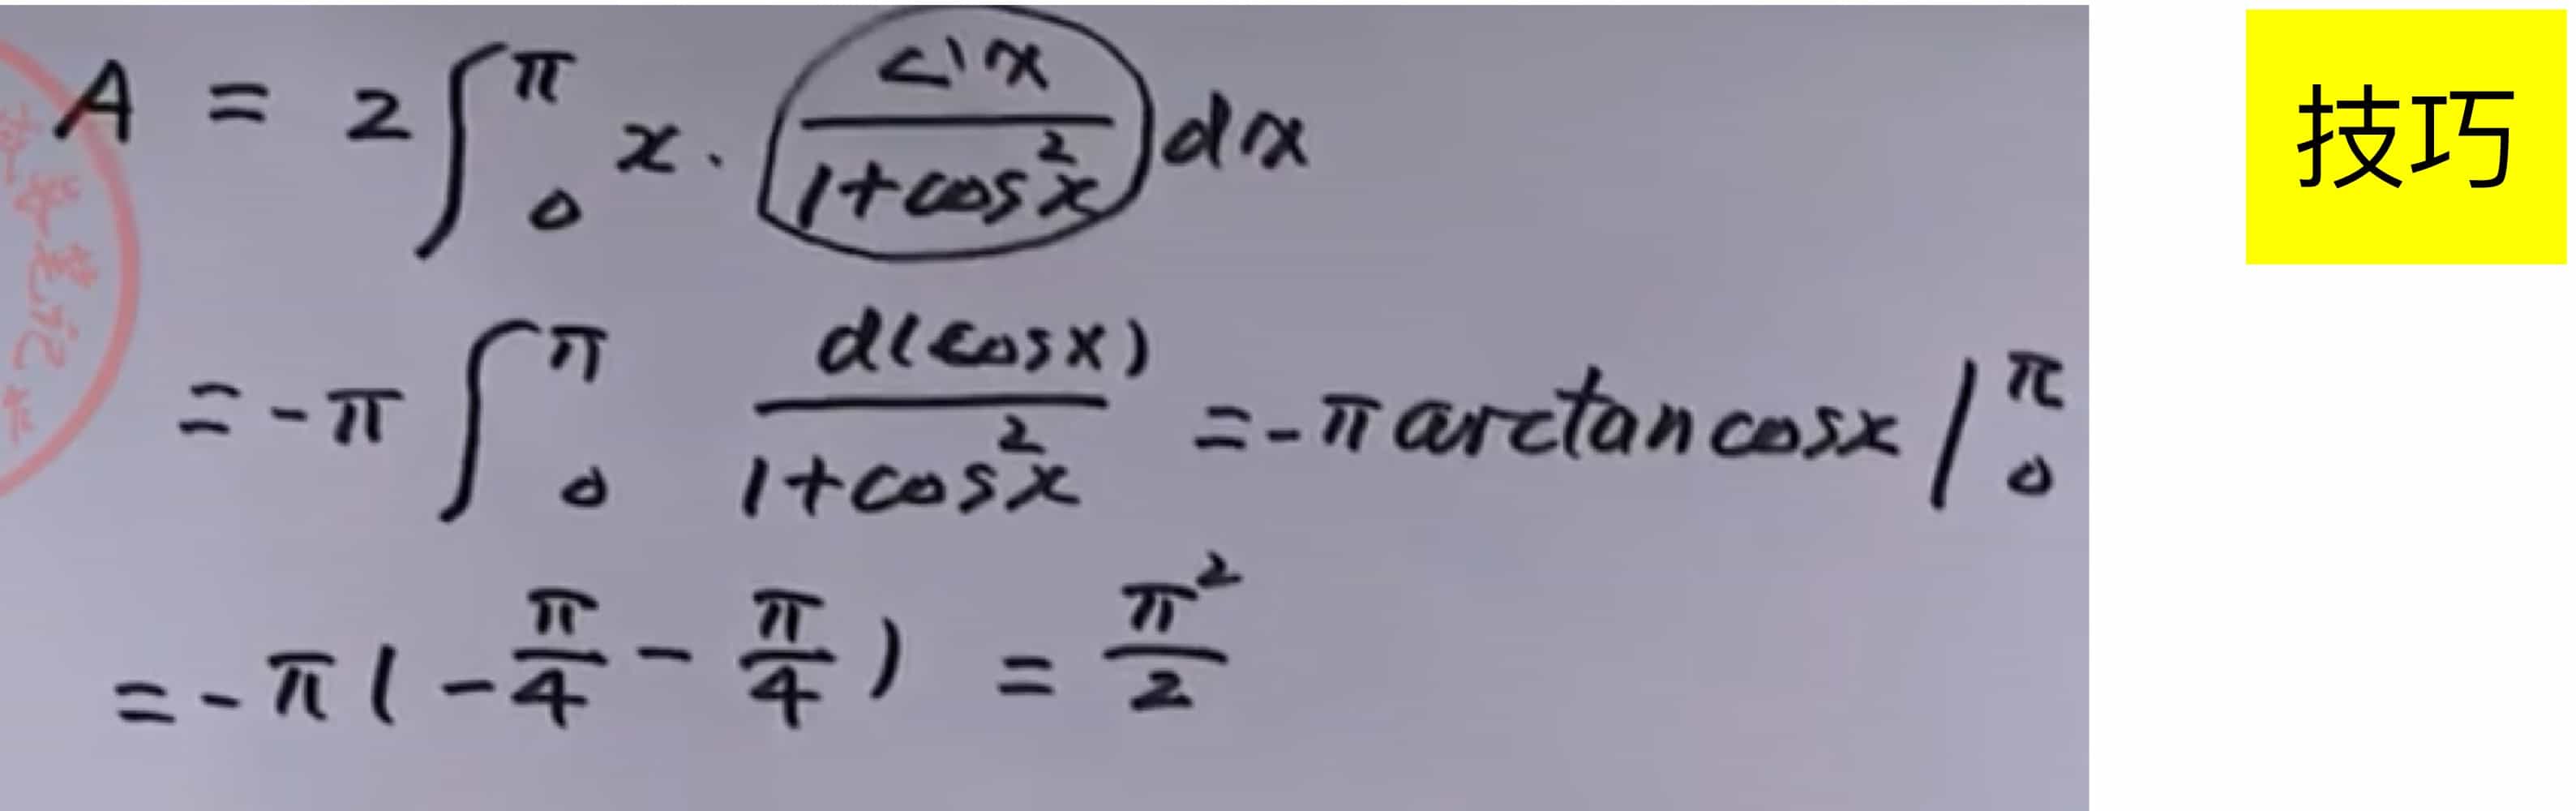 A = 2∫₀^π x · sinx/(1+cos²x) dx
技巧
= -π ∫₀^π d(cosx)/(1+cos²x) = -π arctan cosx |₀^π
= -π(-π/4 - π/4) = π²/2